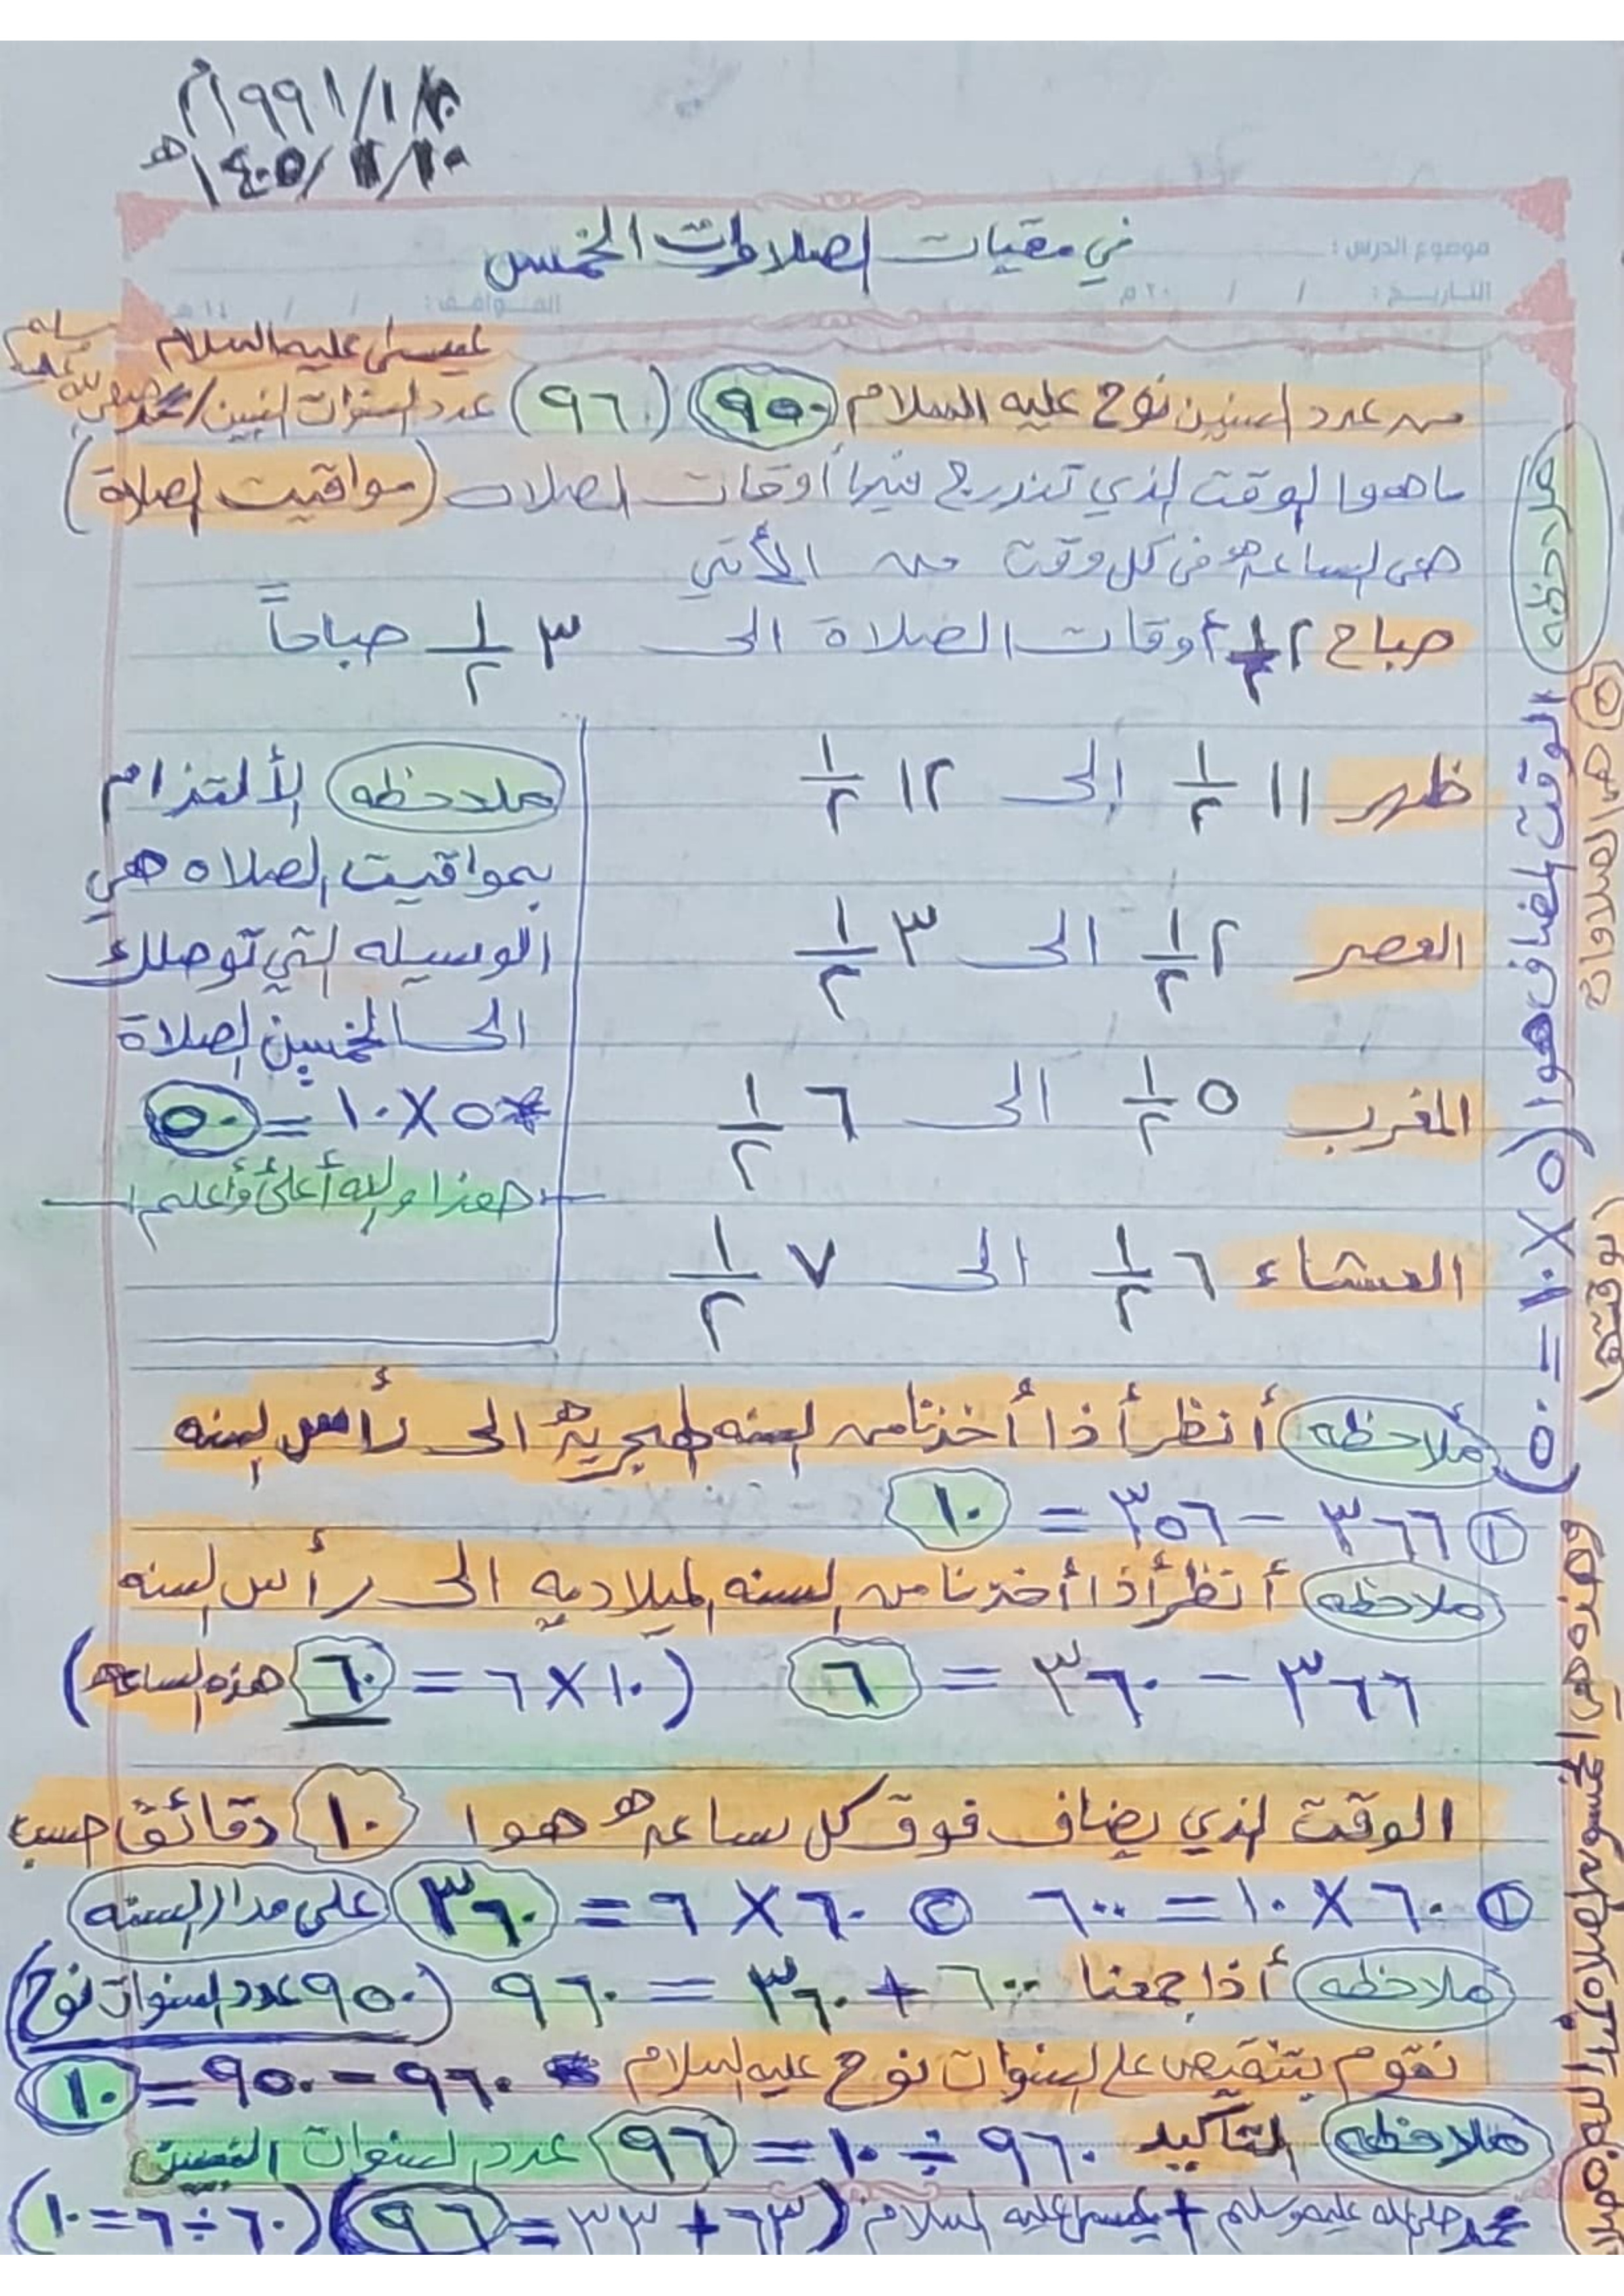 ١٩٩١/١/٢٠م
١٤٠٥/٢/٢٠هـ
موضوع الدرس :
في مقيات الصلاوات الخمس
التاريخ : / / ٢٠م
الموافق : / / ١٤هـ
عيسى عليه السلام
من عدد السنين نوح عليه السلام (٩٥٠) (٩٦) عدد السنوات النبين/محمد صلى الله عليه وسلم
ماهوا الوقت الذي تندرج فيها أوقات الصلاه (مواقيت الصلاة)
هي الساعه في كل وقت من الأتي
صباح ٢ ١/٢ أوقات الصلاة الى ٣ ١/٢ صباحاً
ظهر ١١ ١/٢ إلى ١٢ ١/٢
العصر ٢ ١/٢ الى ٣ ١/٢
المغرب ٥ ١/٢ الى ٦ ١/٢
العشاء ٦ ١/٢ الى ٧ ١/٢
ملاحظه الألتزام
بمواقيت الصلاه هي
الوسيله التي توصلك
الى الخمسين الصلاة
* ٥ × ١٠ = ٥٠
هذا والله أعلى وأعلم
ملاحظه أنظر أذا أخذنا من السنه الهجريه الى رأس السنه
① ٣٦٦ - ٣٥٦ = ١٠
ملاحظه أنظر أذا أخذنا من السنه الميلاديه الى رأس السنه
٣٦٦ - ٣٦٠ = ٦ (١٠ × ٦ = ٦٠ هذه الساعه)
الوقت الذي يضاف فوق كل ساعه هوا ١٠ دقائق حسب
① ٦٠ × ١٠ = ٦٠٠ ② ٦٠ × ٦ = ٣٦٠ على مدار السنه
ملاحظه أذا جمعنا ٦٠٠ + ٣٦٠ = ٩٦٠ (٩٥٠ عدد السنوات نوح)
نقوم بتنقيص على السنوات نوح عليه السلام * ٩٦٠ - ٩٥٠ = ١٠
ملاحظه التأكيد ٩٦٠ ÷ ١٠ = ٩٦ عدد السنوات النبين
محمد صلى الله عليه وسلم + عيسى عليه السلام (٦٣ + ٣٣ = ٩٦) (٦٠ ÷ ٦ = ١٠)
ملاحظه
الوقت المضاف هوا (٥ × ١٠ = ٥٠)
٥ هي الصلاوات
(بوقتها)
وهذه هي الخمسون الصلاة